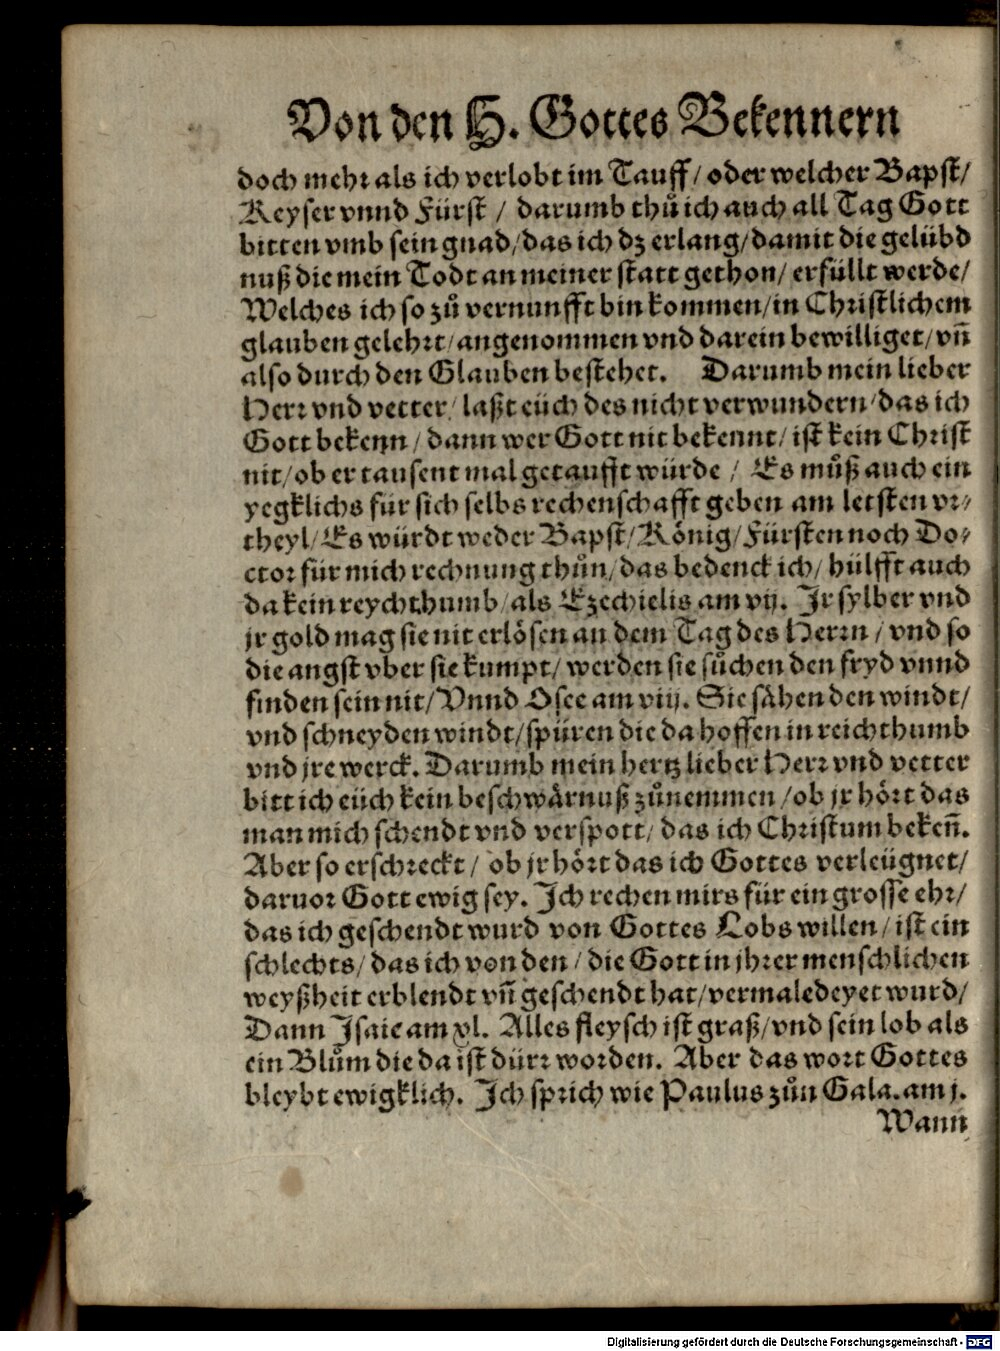 Von den H. Gottes Bekennern
doch mehr als ich verlobt im Tauff/ oder welcher Bapst/
Keyser vnnd Fürst / darumb thů ich auch all Tag Gott
bitten vmb sein gnad/das ich dz erlang/damit die gelübd
nuß die mein Todt an meiner statt gethon/ erfüllt werde/
Welches ich so zů vernunfft bin kommen/in Christlichem
glauben gelehrt/angenommen vnd darein bewilliget/vn̄
also durch den Glauben bestehet. Darumb mein lieber
Herr vnd vetter/ laßt eüch des nicht verwundern/das ich
Gott bekenn/ dann wer Gott nit bekennt/ ist kein Christ
nit/ob er tausent mal getaufft würde / Es můß auch ein
yegklichs für sich selbs rechenschafft geben am letsten vr⸗
theyl/Es würdt weder Bapst/König/Fürsten noch Do⸗
ctor für mich rechnung thůn/das bedenck ich/ hülfft auch
da kein reychthumb/als Ezechielis am vij. Jr sylber vnd
jr gold mag sie nit erlösen an dem Tag des Herrn/ vnd so
die angst vber sie kumpt/ werden sie sůchen den fryd vnnd
finden sein nit/ Vnnd Osee am viij. Sie sähen den windt/
vnd schneyden windt/spüren die da hoffen in reichthumb
vnd jre werck. Darumb mein hertz lieber Herr vnd vetter
bitt ich eüch kein beschwärnuß zůnemmen /ob jr hört das
man mich schendt vnd verspott/ das ich Christum beken̄.
Aber so erschreckt/ ob jr hört das ich Gottes verleügnet/
daruor Gott ewig sey. Jch rechen mirs für ein grosse ehr/
das ich geschendt wurd von Gottes Lobs willen/ ist ein
schlechts/ das ich von den / die Gott in jhrer menschlichen
weyßheit erblendt vn̄ geschendt hat/vermaledeyet wurd/
Dann Jsaie am xl. Alles fleysch ist graß/vnd sein lob als
ein Blům die da ist dürr worden. Aber das wort Gottes
bleybt ewigklich. Jch sprich wie Paulus zůn Gala. am j.
Wann
Digitalisierung gefördert durch die Deutsche Forschungsgemeinschaft - DFG